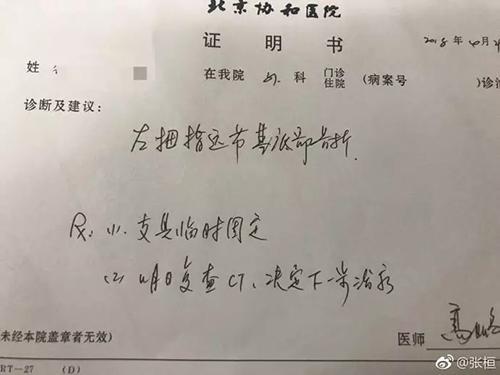 北京协和医院
证 明 书
2018 年 10 月
姓
在我院 外 科 门诊 住院 (病案号 )诊治
诊断及建议:
左拇指远节基底部骨折.
R: (1). 支具临时固定
(2) 明日复查 CT、决定下一步治疗
未经本院盖章者无效)
医师
RT-27 (D)
@张桓